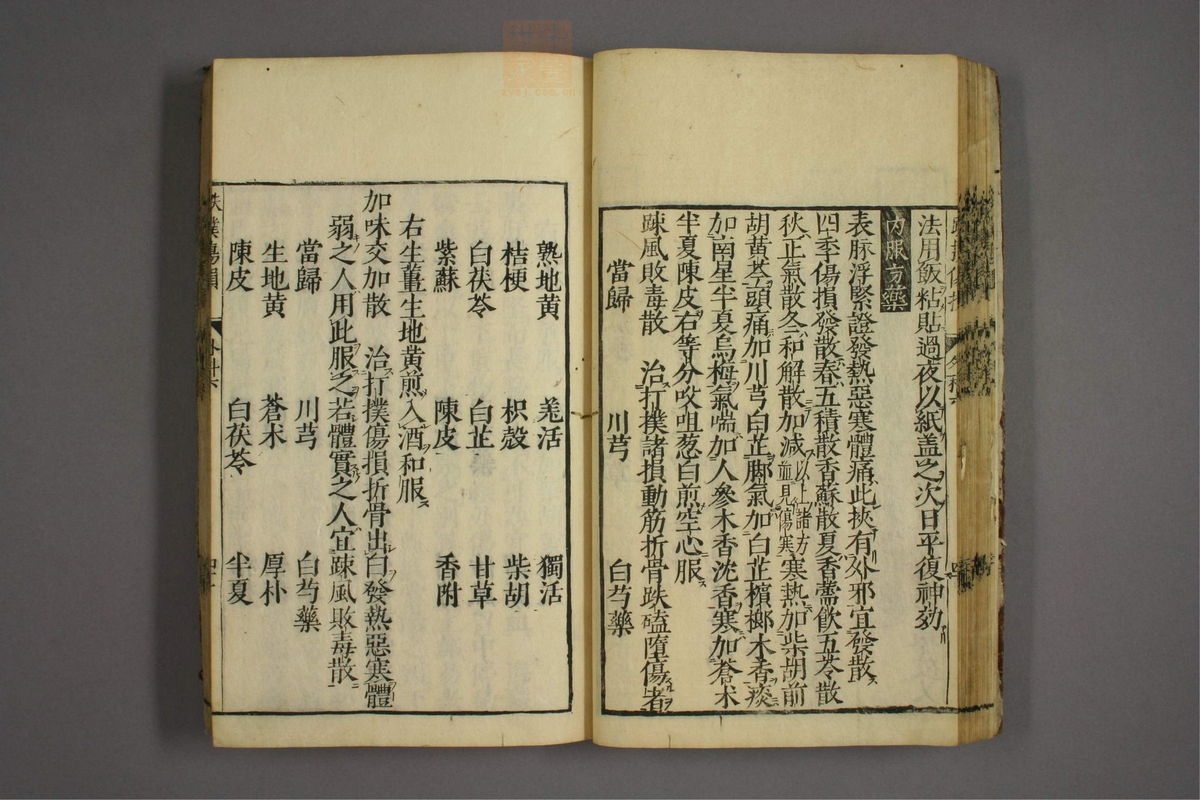 法用飯粘貼過夜以紙盖之次日平復神効
内服方藥
表脉浮緊證發熱惡寒體痛此挾有外邪宜發散
四季傷損發散春五積散香蘇散夏香薷飲五苓散
秋正氣散冬和解散加減以上諸方並見傷寒寒熱加柴胡前
胡黄芩頭痛加川芎白芷脚氣加白芷檳榔木香痰
加南星半夏烏梅氣喘加人參木香沈香寒加蒼朮
半夏陳皮右等分㕮咀葱白煎空心服
踈風敗毒散 治打撲諸損動筋折骨跌磕墮傷者
當歸 川芎 白芍藥
熟地黄 羗活 獨活
桔梗 枳殻 柴胡
白茯苓 白芷 甘草
紫蘇 陳皮 香附
右生薑生地黄煎入酒和服
加味交加散 治打撲傷損折骨出臼發熱惡寒體
弱之人用此服之若體實之人宜踈風敗毒散
當歸 川芎 白芍藥
生地黄 蒼朮 厚朴
陳皮 白茯苓 半夏